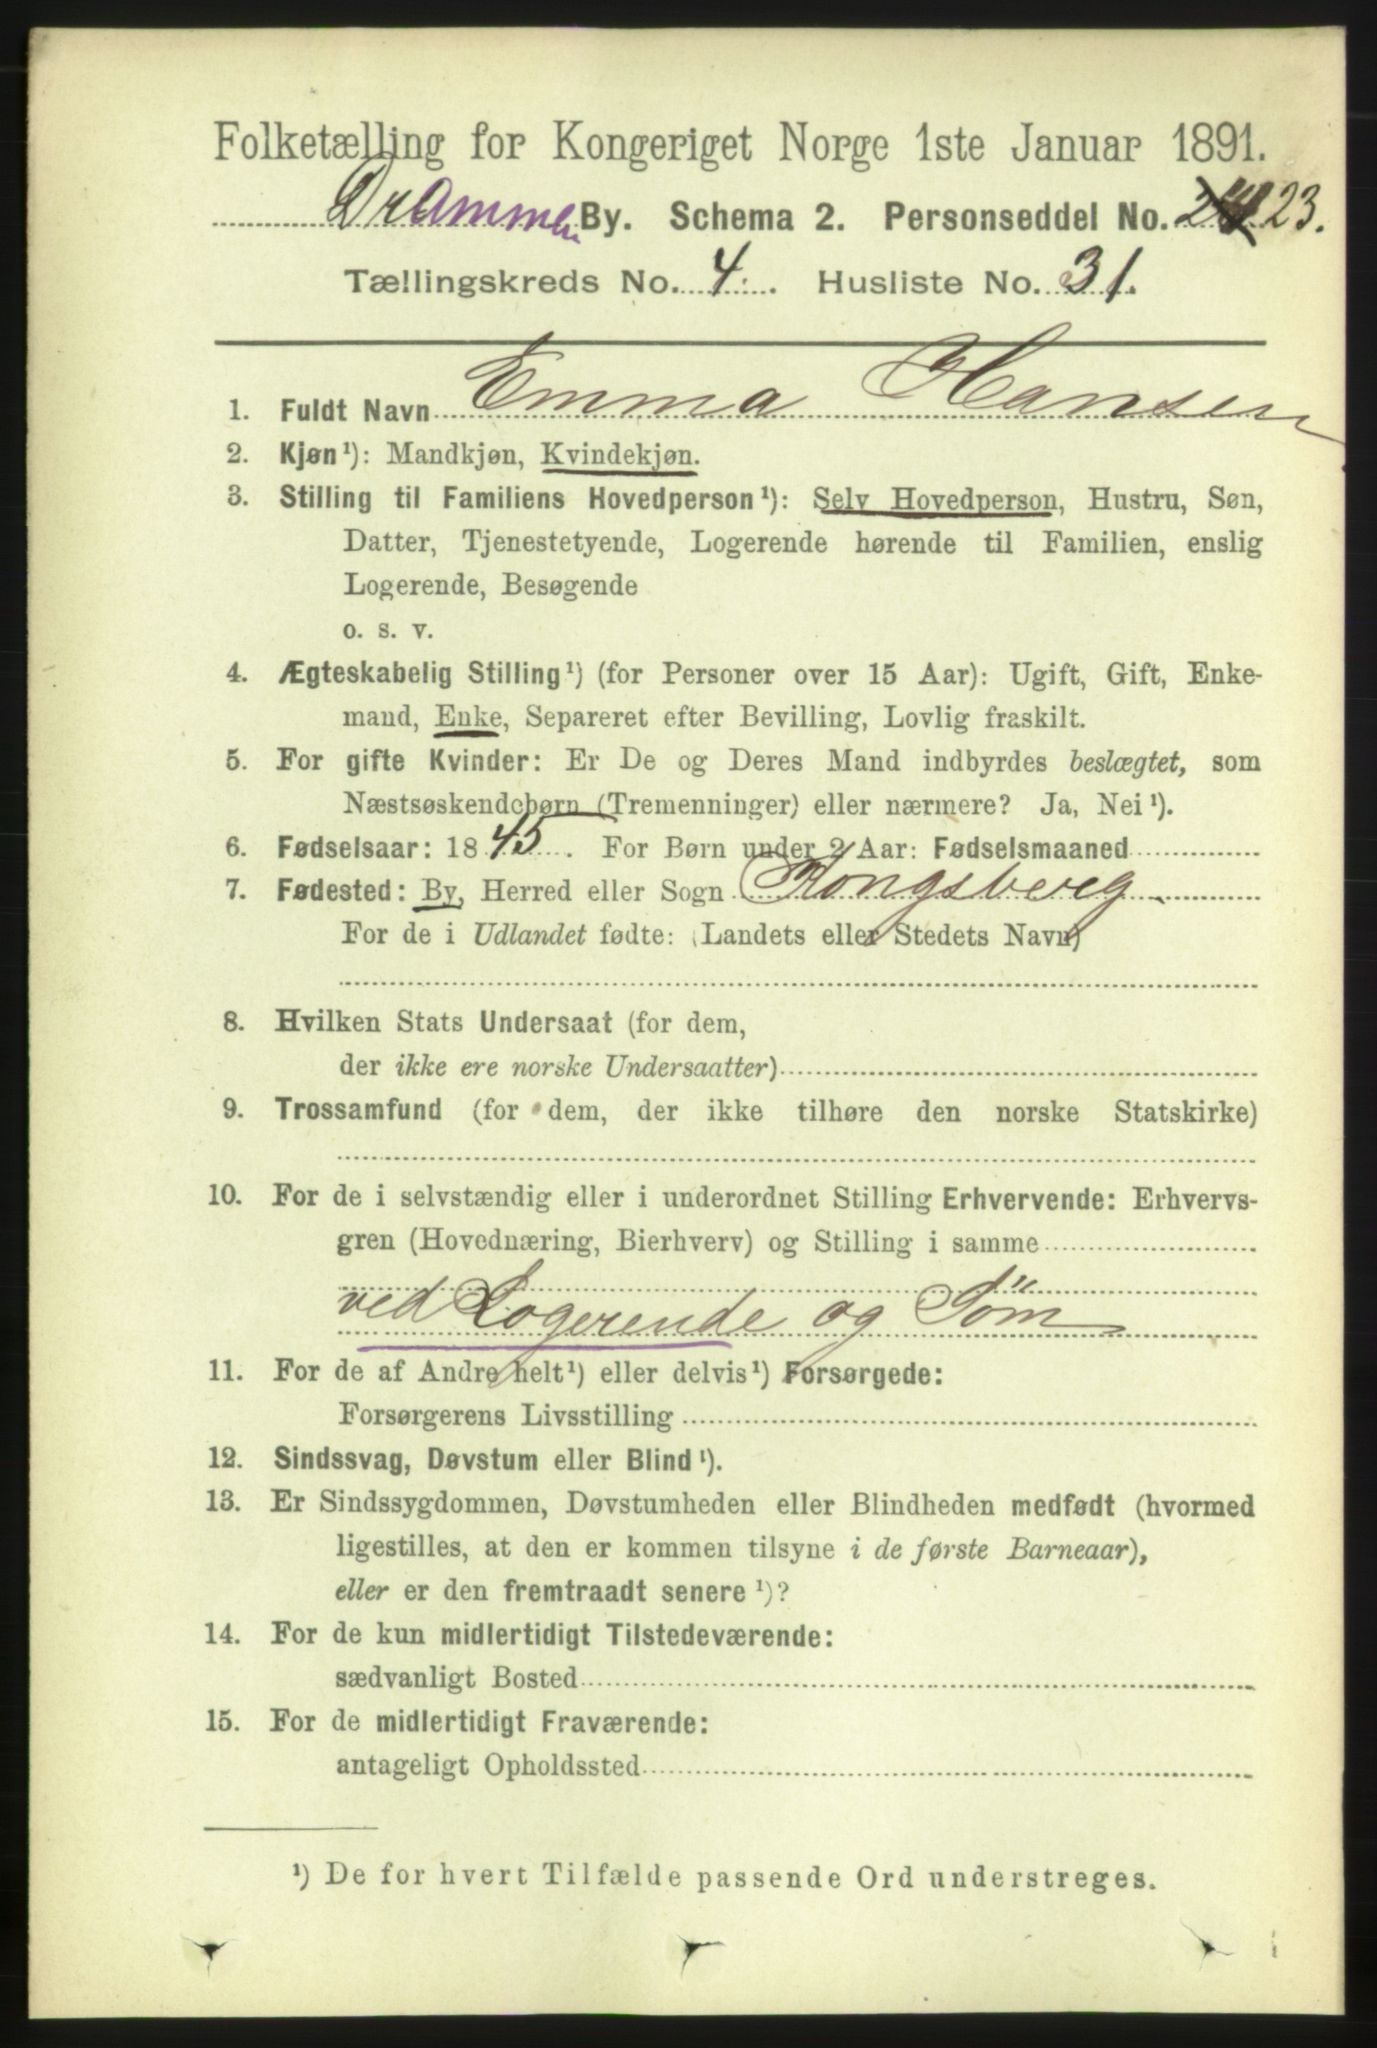 Folketælling for Kongeriget Norge 1ste Januar 1891.
Drammen By. Schema 2. Personseddel No. 23.
Tællingskreds No. 4. Husliste No. 31.
1. Fuldt Navn Emma Hansen
2. Kjøn¹): Mandkjøn, Kvindekjøn.
3. Stilling til Familiens Hovedperson¹): Selv Hovedperson, Hustru, Søn,
Datter, Tjenestetyende, Logerende hørende til Familien, enslig
Logerende, Besøgende
o. s. v.
4. Ægteskabelig Stilling¹) (for Personer over 15 Aar): Ugift, Gift, Enke-
mand, Enke, Separeret efter Bevilling, Lovlig fraskilt.
5. For gifte Kvinder: Er De og Deres Mand indbyrdes beslægtet, som
Næstsøskendebørn (Tremenninger) eller nærmere? Ja, Nei¹).
6. Fødselsaar: 1845. For Børn under 2 Aar: Fødselsmaaned
7. Fødested: By, Herred eller Sogn Kongsberg
For de i Udlandet fødte: (Landets eller Stedets Navn)
8. Hvilken Stats Undersaat (for dem,
der ikke ere norske Undersaatter)
9. Trossamfund (for dem, der ikke tilhøre den norske Statskirke)
10. For de i selvstændig eller i underordnet Stilling Erhvervende: Erhvervs-
gren (Hovednæring, Bierhverv) og Stilling i samme
ved Logerende og Søm
11. For de af Andre helt¹) eller delvis¹) Forsørgede:
Forsørgerens Livsstilling
12. Sindssvag, Døvstum eller Blind¹).
13. Er Sindssygdommen, Døvstumheden eller Blindheden medfødt (hvormed
ligestilles, at den er kommen tilsyne i de første Barneaar),
eller er den fremtraadt senere¹)?
14. For de kun midlertidigt Tilstedeværende:
sædvanligt Bosted
15. For de midlertidigt Fraværende:
antageligt Opholdssted
¹) De for hvert Tilfælde passende Ord understreges.